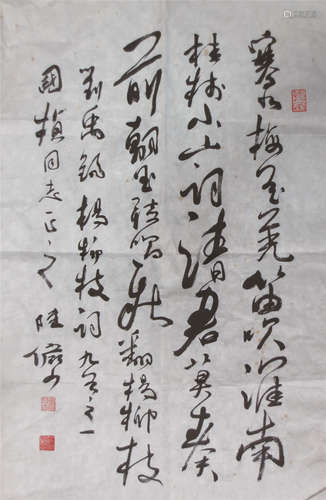 塞北梅花羌笛吹淮南
桂树小山词请君莫奏
前朝曲听唱新翻杨柳枝
刘禹锡杨柳枝词九首之一
国桢同志正之 陆俨少